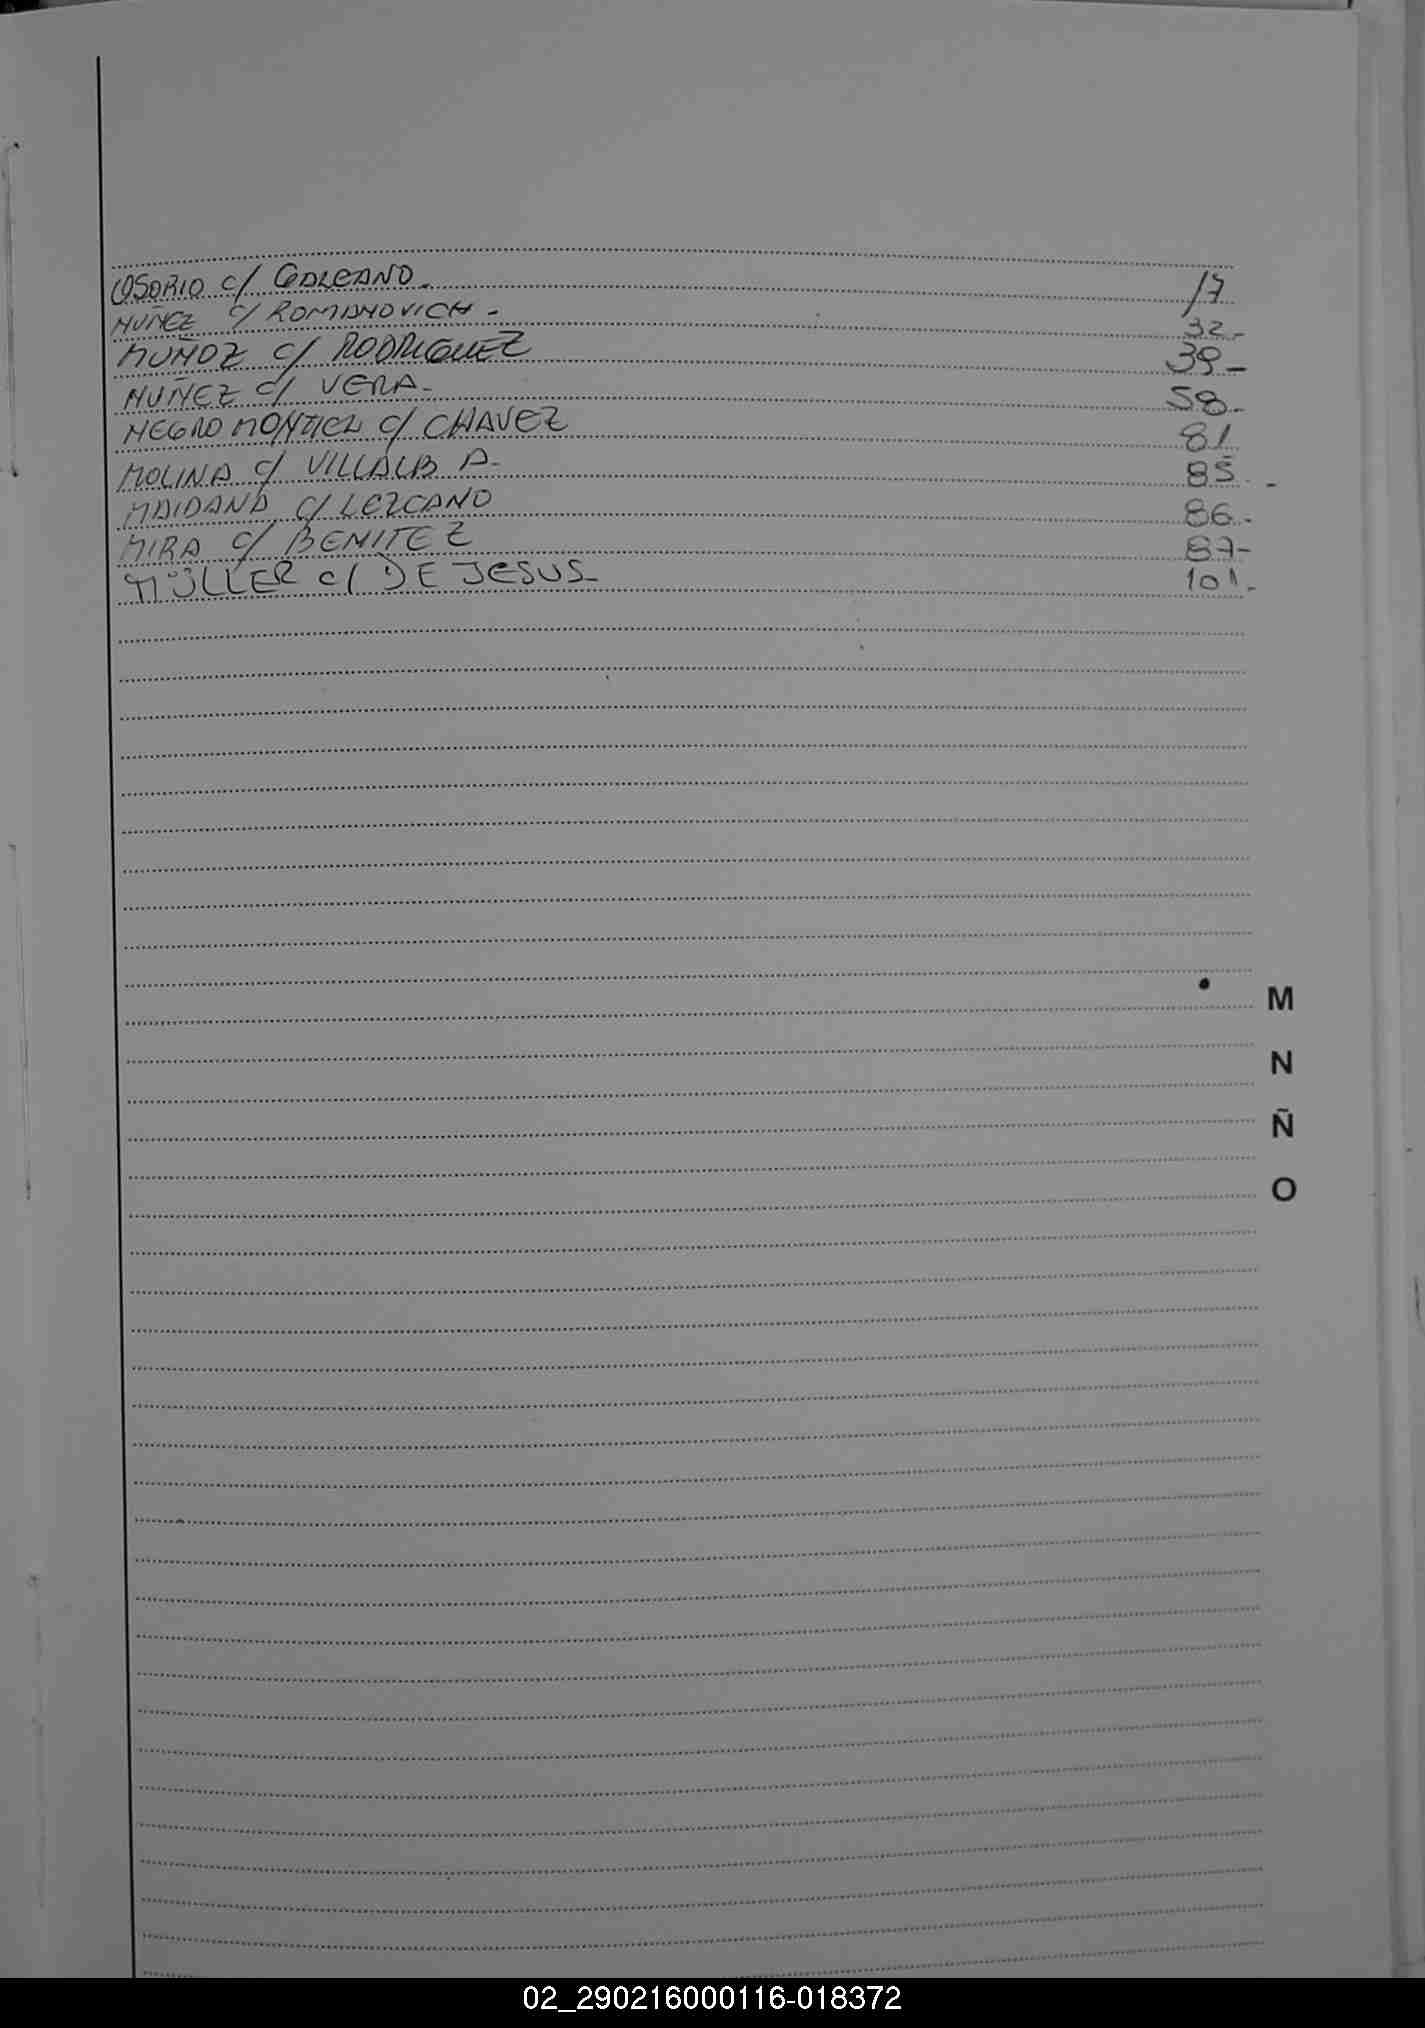 OSORIO c/ GALEANO. 17
NUÑEZ c/ ROMANOVICH - 32-
MUÑOZ c/ RODRIGUEZ 39-
NUÑEZ c/ VERA- 58-
NEGRO MONTIEL c/ CHAVEZ 81
MOLINA c/ VILLALBA- 85-
MAIDANA c/ LEZCANO 86-
MIRA c/ BENITEZ 87-
MÜLLER c/ DE JESUS- 101-
M
N
Ñ
O
02_290216000116-018372